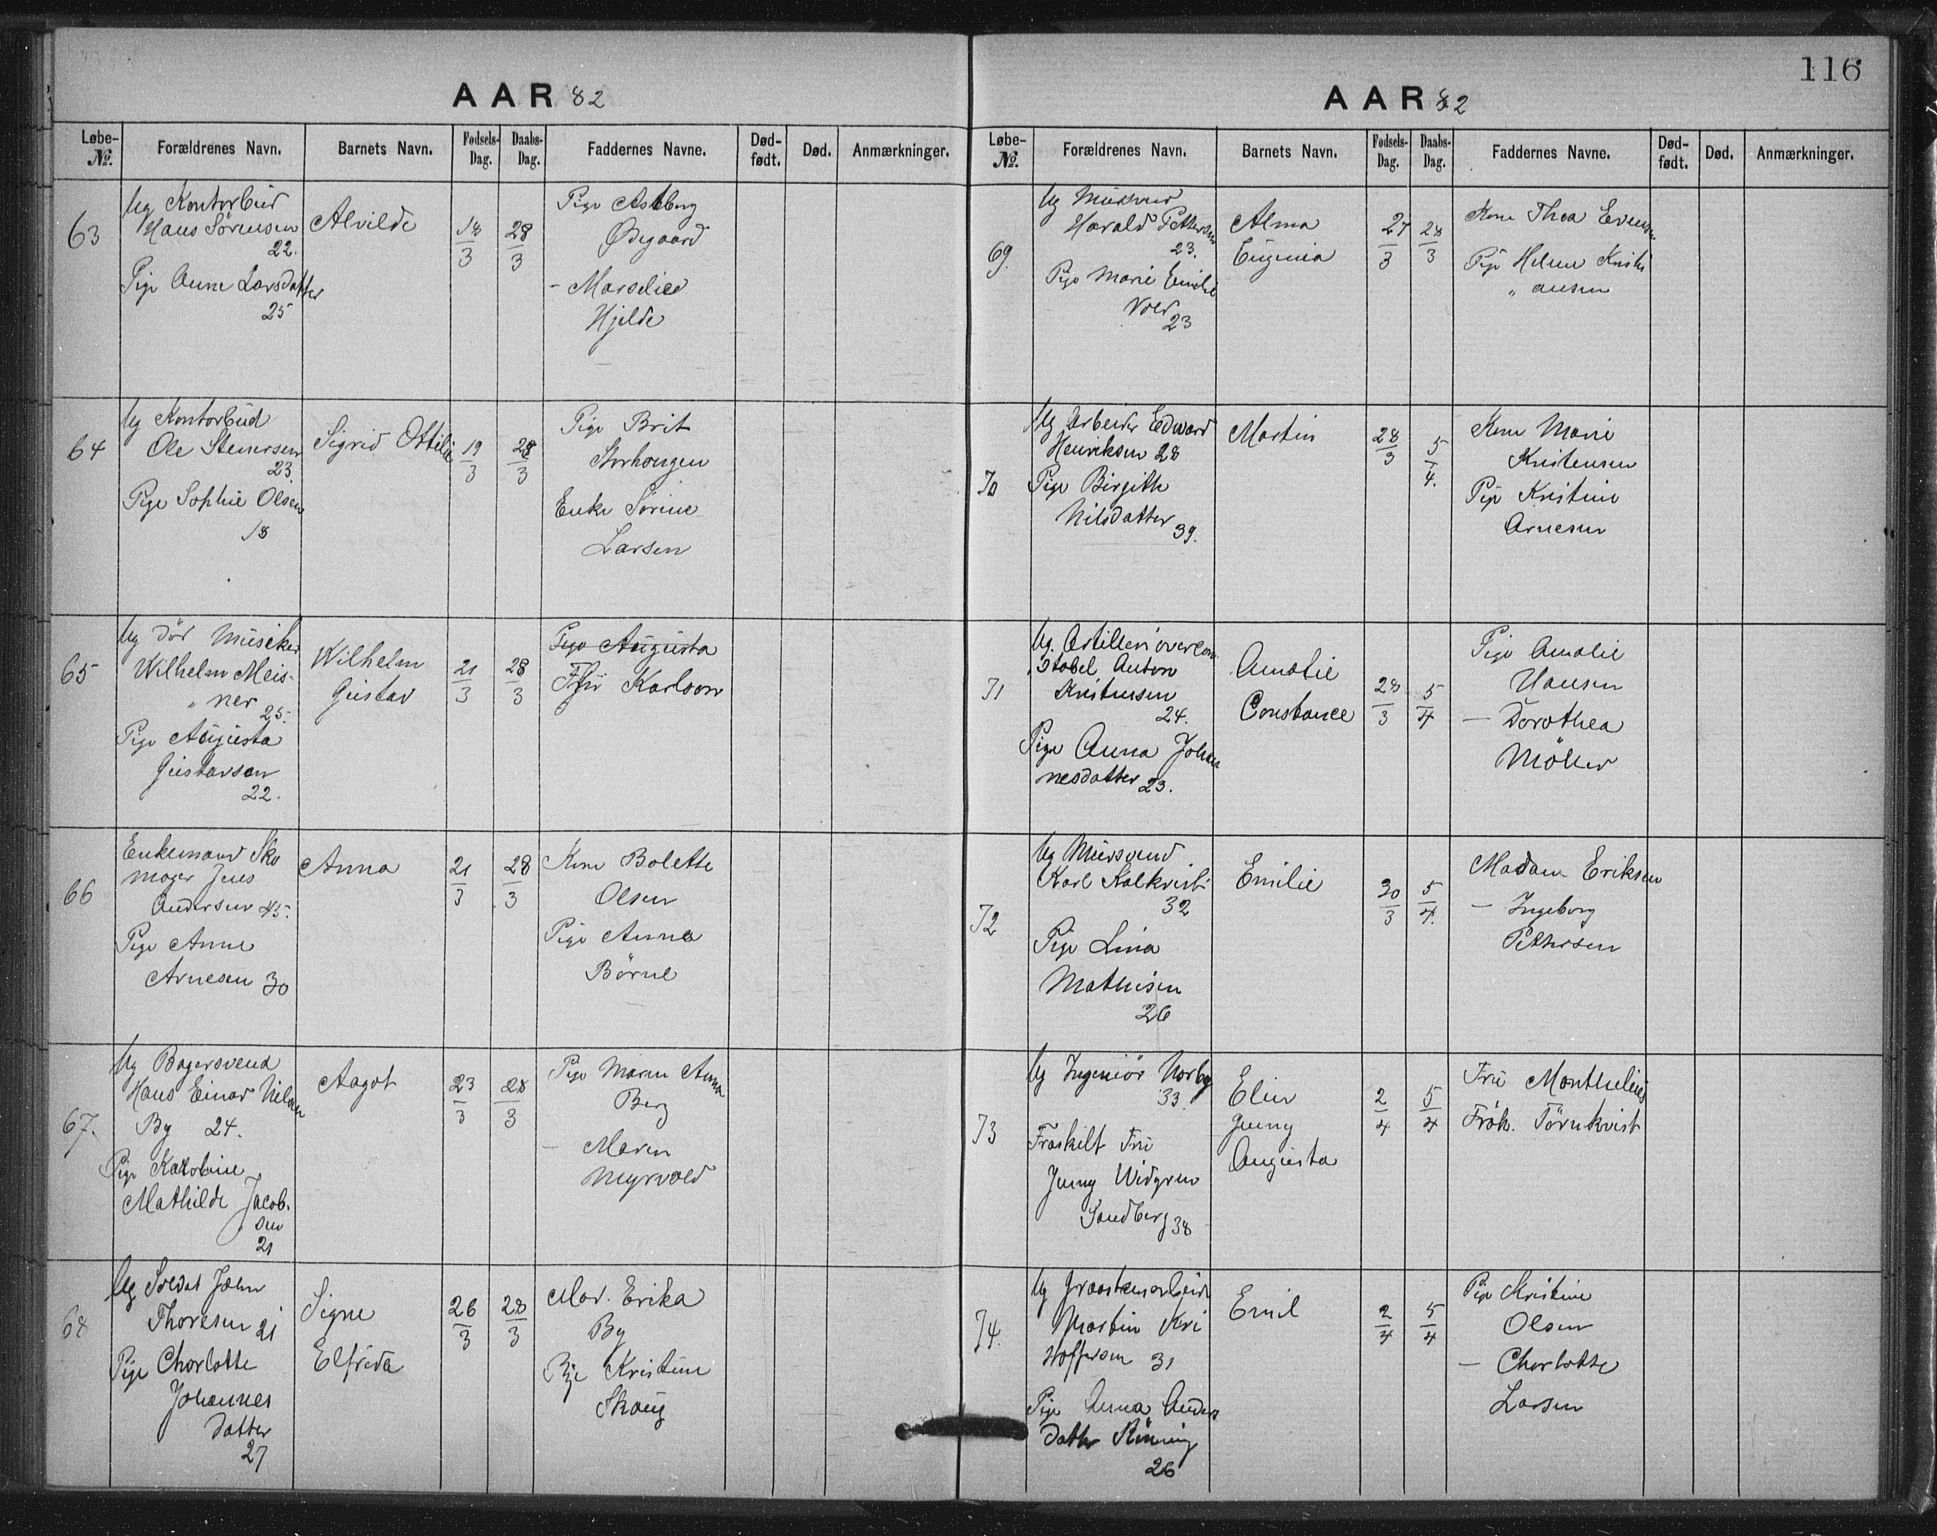 116
AAR 82
Løbe-№. Forældrenes Navn. Barnets Navn. Fødsels-Dag. Daabs-Dag. Faddernes Navne. Død-født. Død. Anmærkninger.
63
Ug Kontorbud
Hans Sørensen
22.
Pige Anne Larsdatter
25
Alvilde
18/3
28/3
Pige
Ødegaard
— Marselie
Hjelde
64
Ug Kontorbud
Ole Stenersen
23.
Pige Sophie Olsen
18
Sigrid Ottilie
19/3
28/3
Pige Brit
Storhougen
Enke Sørine
Larsen
65
Ug Musiker
Wilhelm Meis-
„ ner 25.
Pige Augusta
Gustavson
22.
Wilhelm
Gustav
21/3
28/3
Pige Augusta
Fru Karlson
66
Enkemand Sko
mager Jens
Andersen 45.
Pige Anne
Arnesen 30
Anna
21/3
28/3
Kone Bolette
Olsen
Pige Anna
Børne
67.
Ug Bagersvend
Hans Einar Nilsen
By 24.
Pige Karoline
Mathilde Jacob-
sen
21
Aagot
23/3
28/3
Pige Maren Anna
Berg
— Maren
Myrvold
68
Ug Soldat John
Thoresen 21
Pige Charlotte
Johannes
datter
27
Signe
Elfrida
26/3
28/3
Mad. Erika
By
Pige Kristine
Skoug
AAR 82
Løbe-№. Forældrenes Navn. Barnets Navn. Fødsels-Dag. Daabs-Dag. Faddernes Navne. Død-født. Død. Anmærkninger.
69.
Ug
Harald Pettersen
23.
Pige Marie Emilie
23
Alma
Eugenia
27/3
28/3
Kone Thea Evensen
Pige Helene Kristi
„ ansen
70
Ug Arbeider Edward
Henriksen 28
Pige Birgithe
Nilsdatter 39.
Martin
28/3
5/4.
Kone Marie
Kristensen
Pige Kristine
Arnesen
71
Ug. Artilleri overcon
stabel Anton
Kristensen
24.
Pige Anna Johan
nesdatter 23.
Amalie
Constance
28/3
5/4
Pige Amalie
Hansen
— Dorothea
Möller
72
Ug Mursvend
Karl Kalkvist
32
Pige Lina
Mathisen
26
Emilie
30/3
5/4.
Madam Eriksen
— Ingeborg
Pettersen
73
Ug Ingeniør Norby
33.
Fraskilt Fru
Jenny Widgren
Sandberg 38
Elin
Jenny
Augusta
2/4
5/4
Fru Monthelius
Frøk. Törnkvist
74.
Ug Graastensarbeider
Martin Kri
stoffersen 31
Pige Anna Anders
datter Rönning
26
Emil
2/4
5/4
Pige Kristine
Olsen
— Charlotte
Larsen